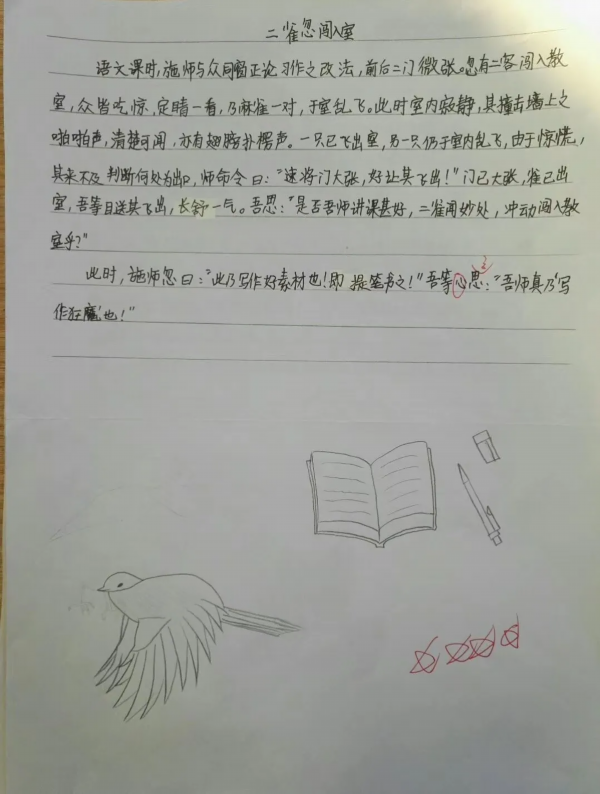 二雀忽闯入室
语文课时,施师与众同窗正论习作之改法,前后二门微张。忽有二客闯入教
室,众皆吃惊,定睛一看,乃麻雀一对,于室乱飞。此时室内寂静,其撞击墙上之
啪啪声,清楚可闻,亦有翅膀扑楞声。一只已飞出室,另一只仍于室内乱飞,由于惊慌,
其来不及判断何处为出口,师命令曰:“速将门大张,好让其飞出!”门已大张,雀已出
室,吾等目送其飞出,长舒一气。吾思:“是否吾师讲课甚好,二雀闻妙处,冲动闯入教
室乎?”
此时,施师忽曰:“此乃写作好素材也!即提笔书之!”吾等心思:“吾师真乃‘写
作狂魔’也!”